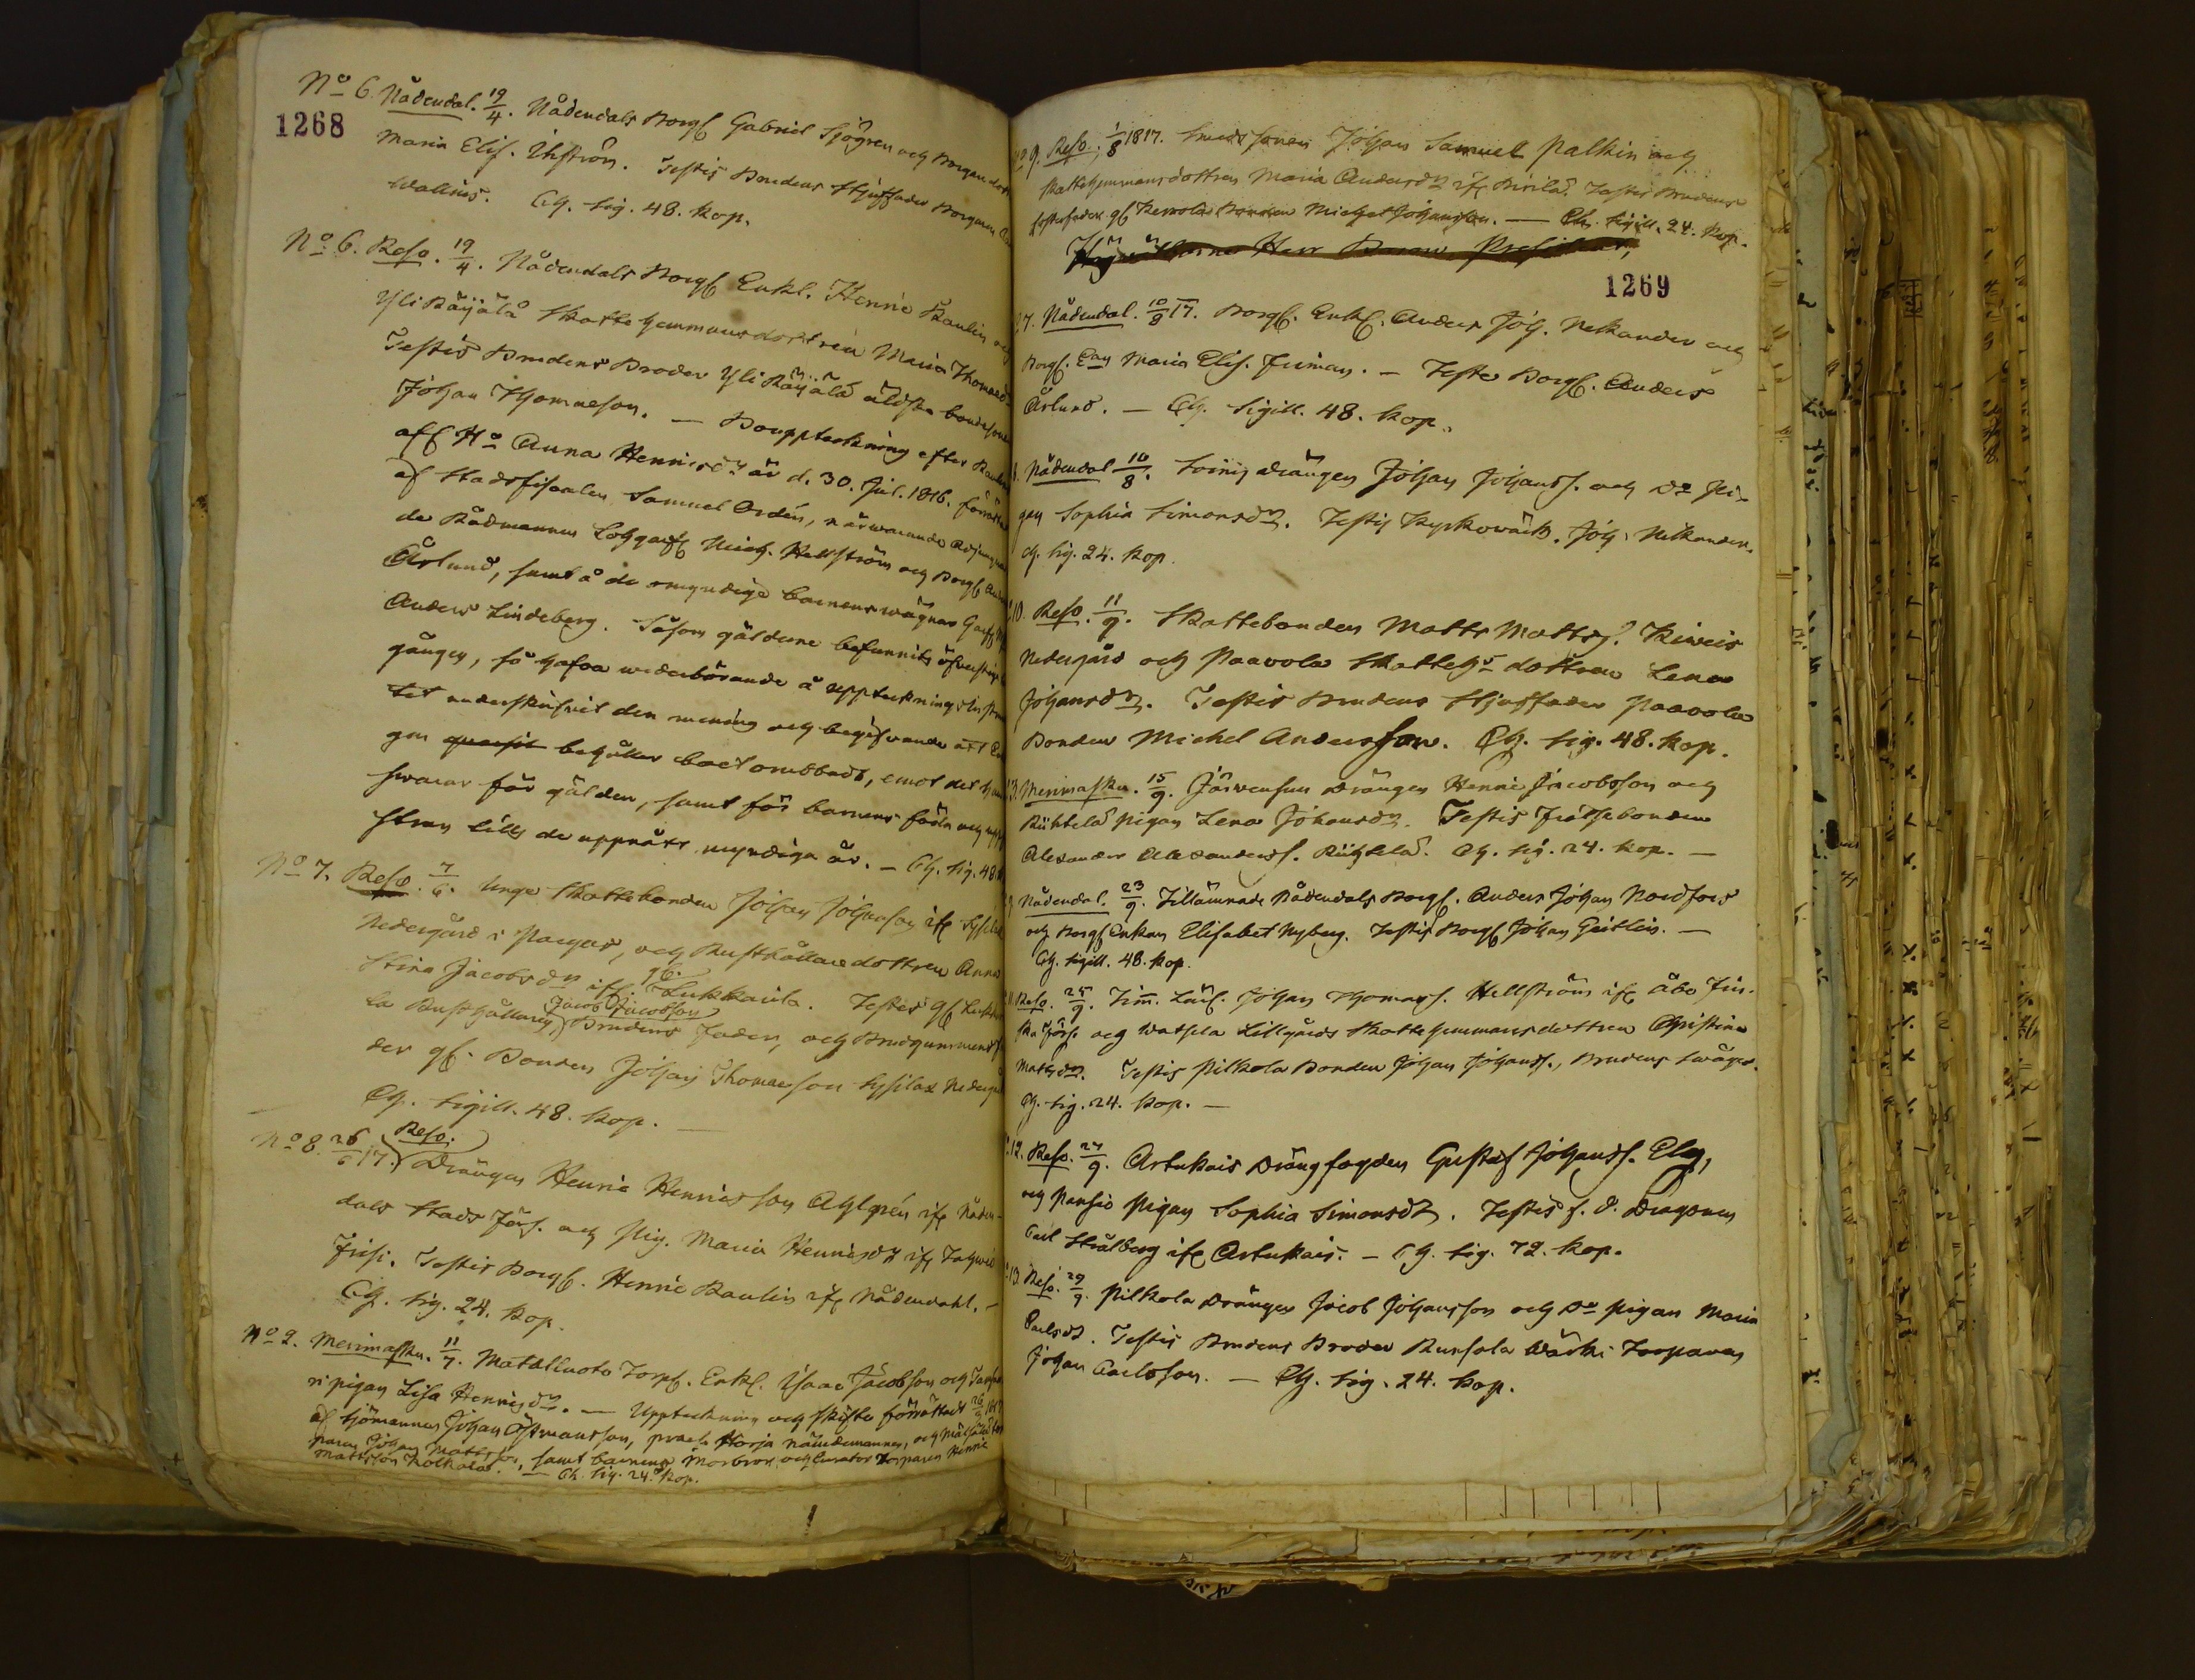 No 6. Nådendal. 19/4. Nådendals Borgs. Gabriel Sjögren och Borgare
1268
Maria Elis. Uhström. Testis Brudens Stjuffader Borgaren
Wallius. Ch. sig. 48. kop.
No 6. Reso. 19/4. Nådendals Borgs. Enkl. Henric Raulin och
Yli Räyjälä Skatte hemmansdottren Maria Thomasd.
Testis Brudens Broder Yli Räyjälä äldste bondeson
Johan Thomasson. — Bouppteckning efter
afl. Ho Anna Henricsdr är d. 30. Jul. 1816. förrättad
af Stadsfiscalen Samuel Ordén, närwarande
de Rådmannen Lohgarf. Mich. Hellström och Borgs.
Åslund, samt å de omyndige barnens wägnar Garf.
Anders Lindeberg. Såsom gäldene befunnits öfverstiga
gången, så hafva wederbörande å uppteckningsInstru
tet underskrifvit den mening och begifvande att
gen behåller boet omebbadt, emot det han
swarar för gälden, samt för barnens föda och upp
stran tills de uppnått myndiga år. — Ch. sig. 48.
No 7. Reso. 7/6. Unge Skattebonden Johan Johansson ifr.
Nedergård i Pargas, och Rusthållaredottren Anna
Stina Jacobsdr ifr. gl. Lukkarila. Testes gl.
la Rusthållaren Jacob Jacobsson Brudens Fader, och Brudgummens
der gl. Bonden Johan Thomasson Sysilax Nedergård
Ch. Sigill. 48. kop. —
No 8. 26/6 17. Reso. Drängen Henric Henricsson Ahlgrén ifr. Nåden-
dals Stads Förs. och Pig. Maria Henricsdr ifr.
Testis Borgs. Henric Raulin ifr. Nådendahl. —
Ch. sig. 24. kop.
No 2. Merimasku. 11/7. Matalluoto Torp. Enkl. Isaac Jacobson och
ri pigan Lisa Henricsdr. — Uppteckning och skifte förrättadt
af Sjömannen Johan Östmansson, Nämdemannen, och
paren Johan Mattsson, samt barnens Morbror och Curator Torparen Henric
Mattsson Kolkala. — Ch. sig. 24. kop.
9. Reso. 1/8 1817. Smeds sonen Johan Samuel Palkin och
Skattehemmansdottren Maria Andersdr ifr. Testis Brudens
fader gl. Bonden Michel Johansson. — Ch. Sigill. 24. kop.
Herr Baron President,
1269
7. Nådendal. 10/8 17. Borgs. Enkl. Anders Joh. Nelkander och
Borgs. Maria Elis. Friman. — Teste Borgs. Anders
Åslund. — Ch. Sigill. 48. kop.
Nådendal 10/8. Soinis drängen Johan Johanss. och Do Pi-
gan Sophia Simonsdr. Testis Kyrkowäkt. Joh. Nelkander.
Ch. sig. 24. kop.
10. Reso. 11/9. Skattebonden Matts Mattss. Kiweis
Nedergård och Paavola Skattehs dottren Lena
Johansdr. Testis Brudens Stjuffader Paavola
Bonden Michel Andersson. Ch. sig. 48. kop.
3. Merimasku. 15/9. Järwensuu drängen Henric Jacobsson och
Riihtilä pigan Lena Johansdr. Testis Frälsebonden
Alexander Alexanderss. Riihtilä. Ch. sig. 24. kop. —
Nådendal. 23/9. Tillämnade Nådendals Borgs. Anders Johan Nordfors
och Borgs. Enkan Elisabet Nyberg. Testis Borgs. Johan Geitlin. —
Ch. Sigill. 48. kop.
11. Reso. 25/9. Tim. Lärl. Johan Thomass. Hellström ifr. Åbo Fin-
ska förs. och Watsela Lillgårds Skatte hemmansdottren Christina
Matsdr. Testis Pilkola Bonden Johan Johanss., Brudens Swåger.
Ch. sig. 24. kop. —
12. Reso. 27/9. Artukais Drängfogden Gustaf Johanss. Elg,
och Pansio Pigan Sophia Simonsdr. Testis f. d. Dragonen
Carl Strålberg ifr. Artukais. — Ch. sig. 72. kop.
13. Reso. 29/9. Pilkola Drängen Jacob Johansson och Do pigan Maria
Carlsdr. Testis Brudens Broder Runsala Torparen
Johan Carlsson. — Ch. sig. 24. kop.